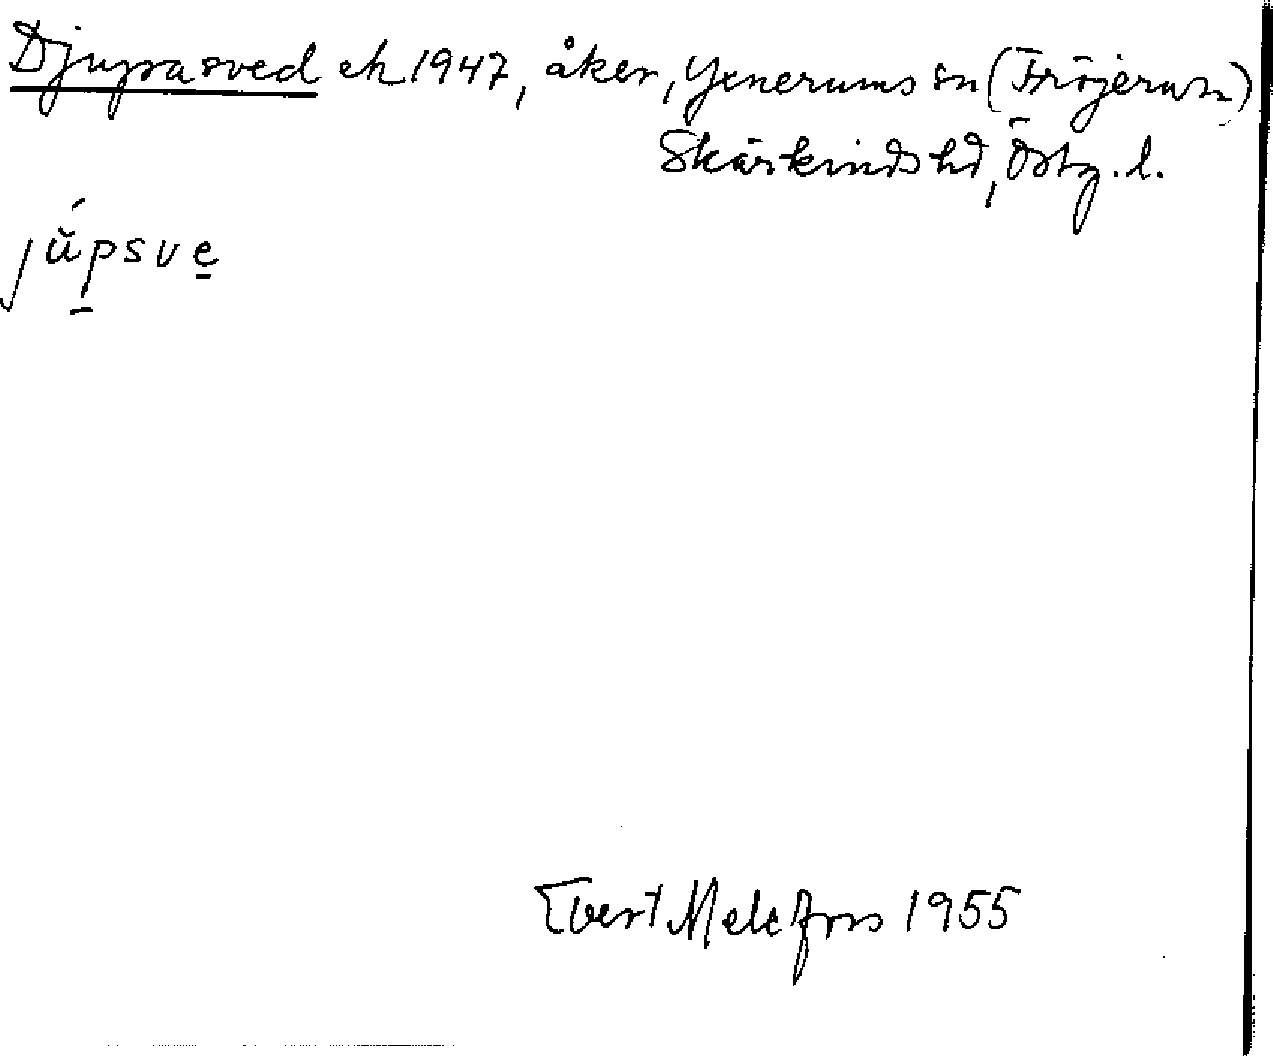 Djupasved ek 1947, åker, Yxnerums sn (Fröjerum)
Skärkinds hd, Östg. l.
júpsve
Evert Melefors 1955